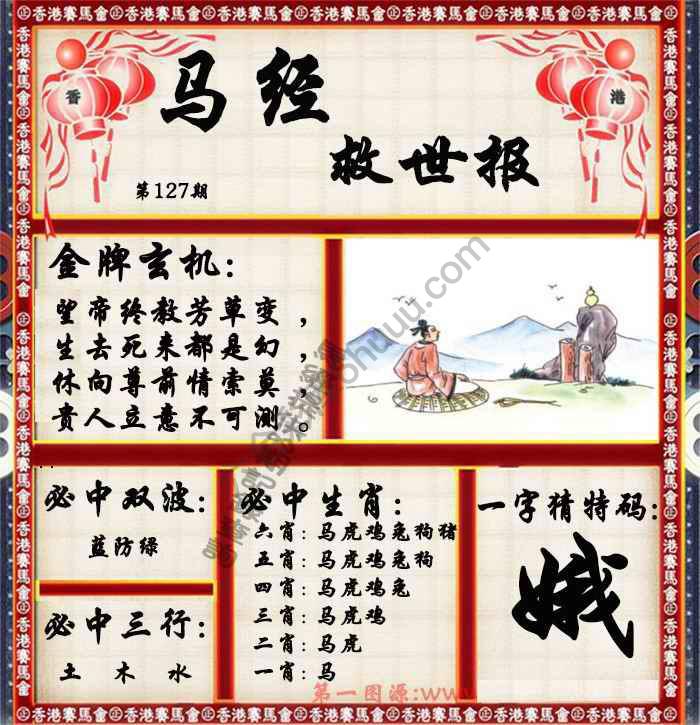 香港賽馬會
香
港
马经
救世报
第127期
金牌玄机:
望帝终教芳草变，
生去死来都是幻，
休向尊前情索莫，
贵人立意不可测。
必中双波:
蓝防绿
必中三行:
土 木 水
必中生肖:
六肖:马虎鸡兔狗猪
五肖:马虎鸡兔狗
四肖:马虎鸡兔
三肖:马虎鸡
二肖:马虎
一肖:马
一字猜特码:
娥
第一图源:www